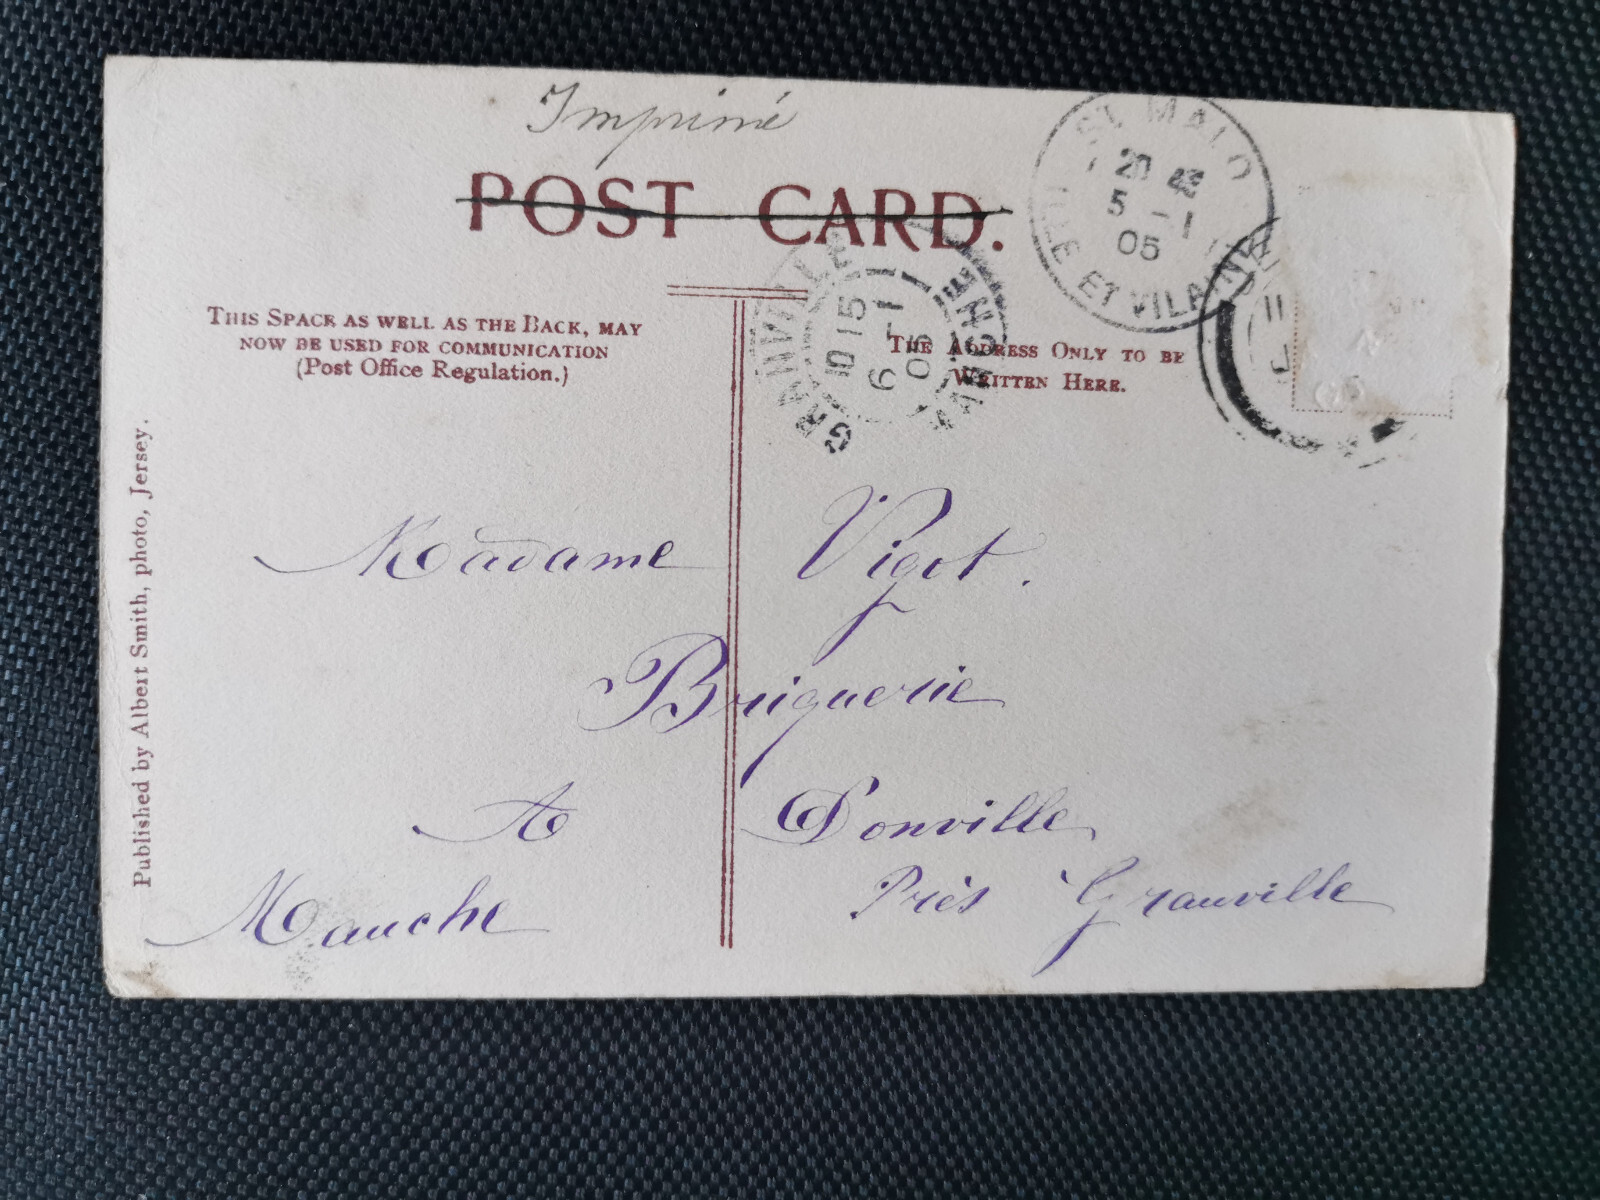 Imprimé
POST CARD.
THIS SPACE AS WELL AS THE BACK, MAY
NOW BE USED FOR COMMUNICATION
(Post Office Regulation.)
THE ADDRESS ONLY TO BE
WRITTEN HERE.
ST MALO
20
5 - 1
05
ILLE ET VILAINE
GRANVILLE
10 15
6 - 1
05
MANCHE
Published by Albert Smith, photo, Jersey.
Madame Vigot.
Briquerie
A Donville
Près Granville
Manche